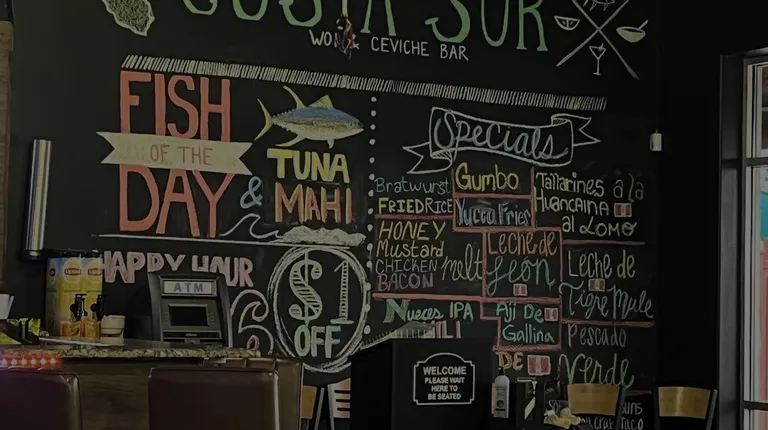 COSTA SUR
WOK & CEVICHE BAR
FISH
OF THE
DAY
&
TUNA
MAHI
Specials
Bratwurst
FRIED RICE
Gumbo
Yucca Fries
Tallarines á la
Huancaina
al LOMO
HONEY
Mustard
CHICKEN
BACON
melt
Leche de
León
Leche de
Tigre Mule
Nueces IPA
Aji De
Gallina
Pescado
Verde
DE
HAPPY HOUR
$1
OFF
ATM
Lipton
WELCOME
PLEASE WAIT
HERE TO
BE SEATED
Taco